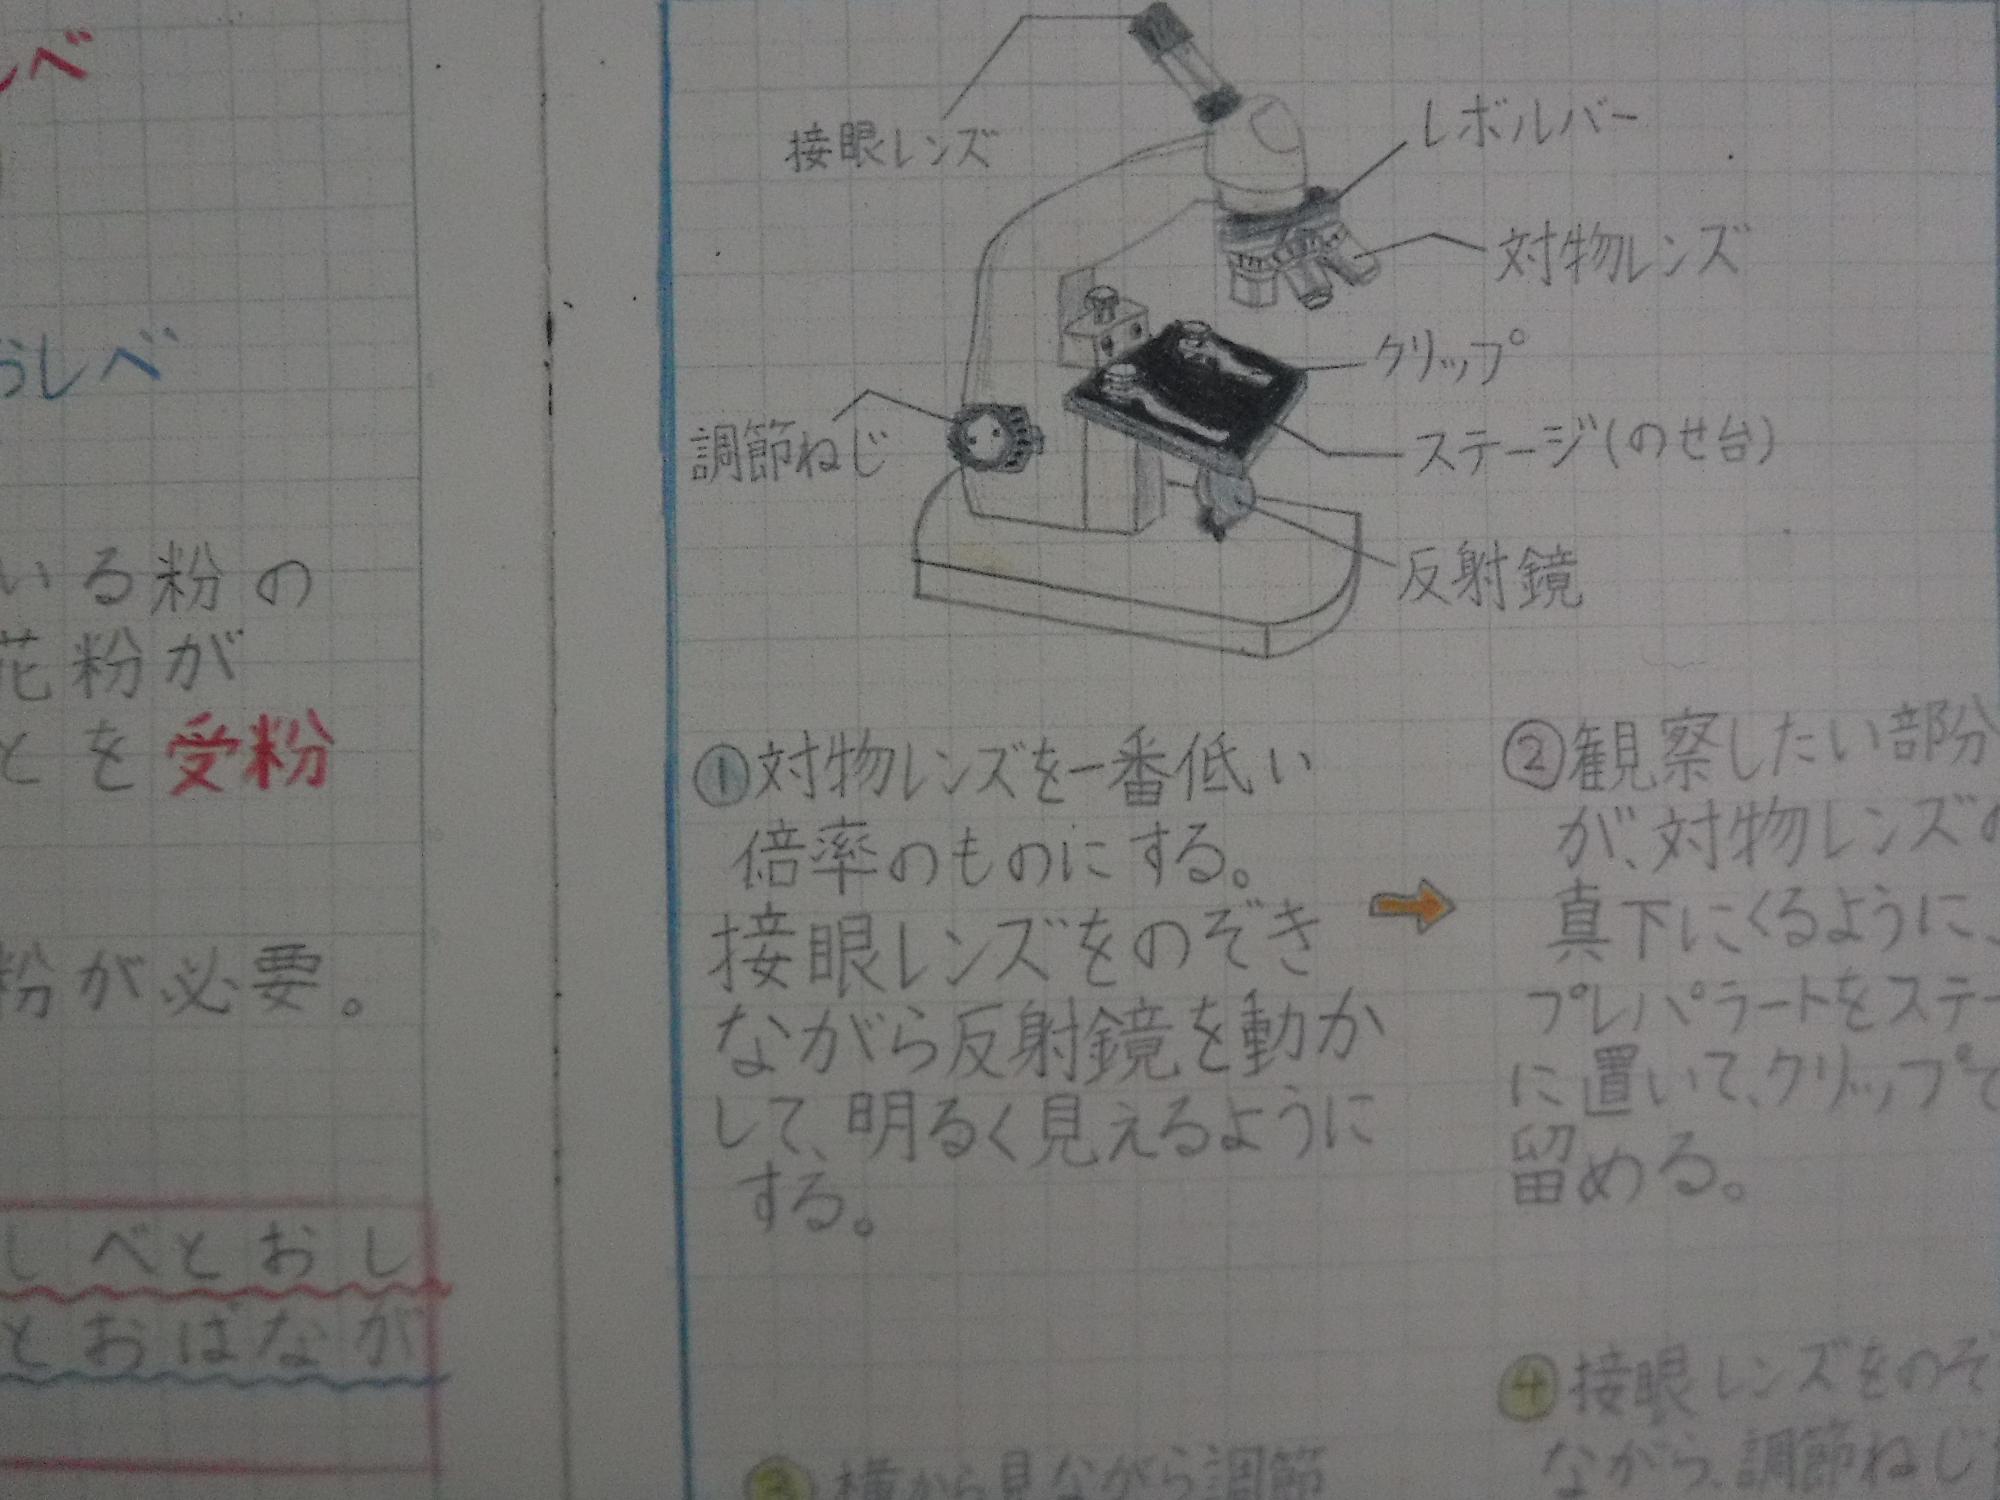 しべ
おしべ
いる粉の
花粉が
とを受粉
粉が必要。
しべとおし
とおばなが
接眼レンズ
レボルバー
対物レンズ
クリップ
調節ねじ
ステージ(のせ台)
反射鏡
①対物レンズを一番低い
倍率のものにする。
接眼レンズをのぞき
ながら反射鏡を動か
して、明るく見えるように
する。
②観察したい部分
が、対物レンズの
真下にくるように、
プレパラートをステー
に置いて、クリップで
留める。
③横から見ながら調節
④接眼レンズをのぞ
ながら、調節ねじ